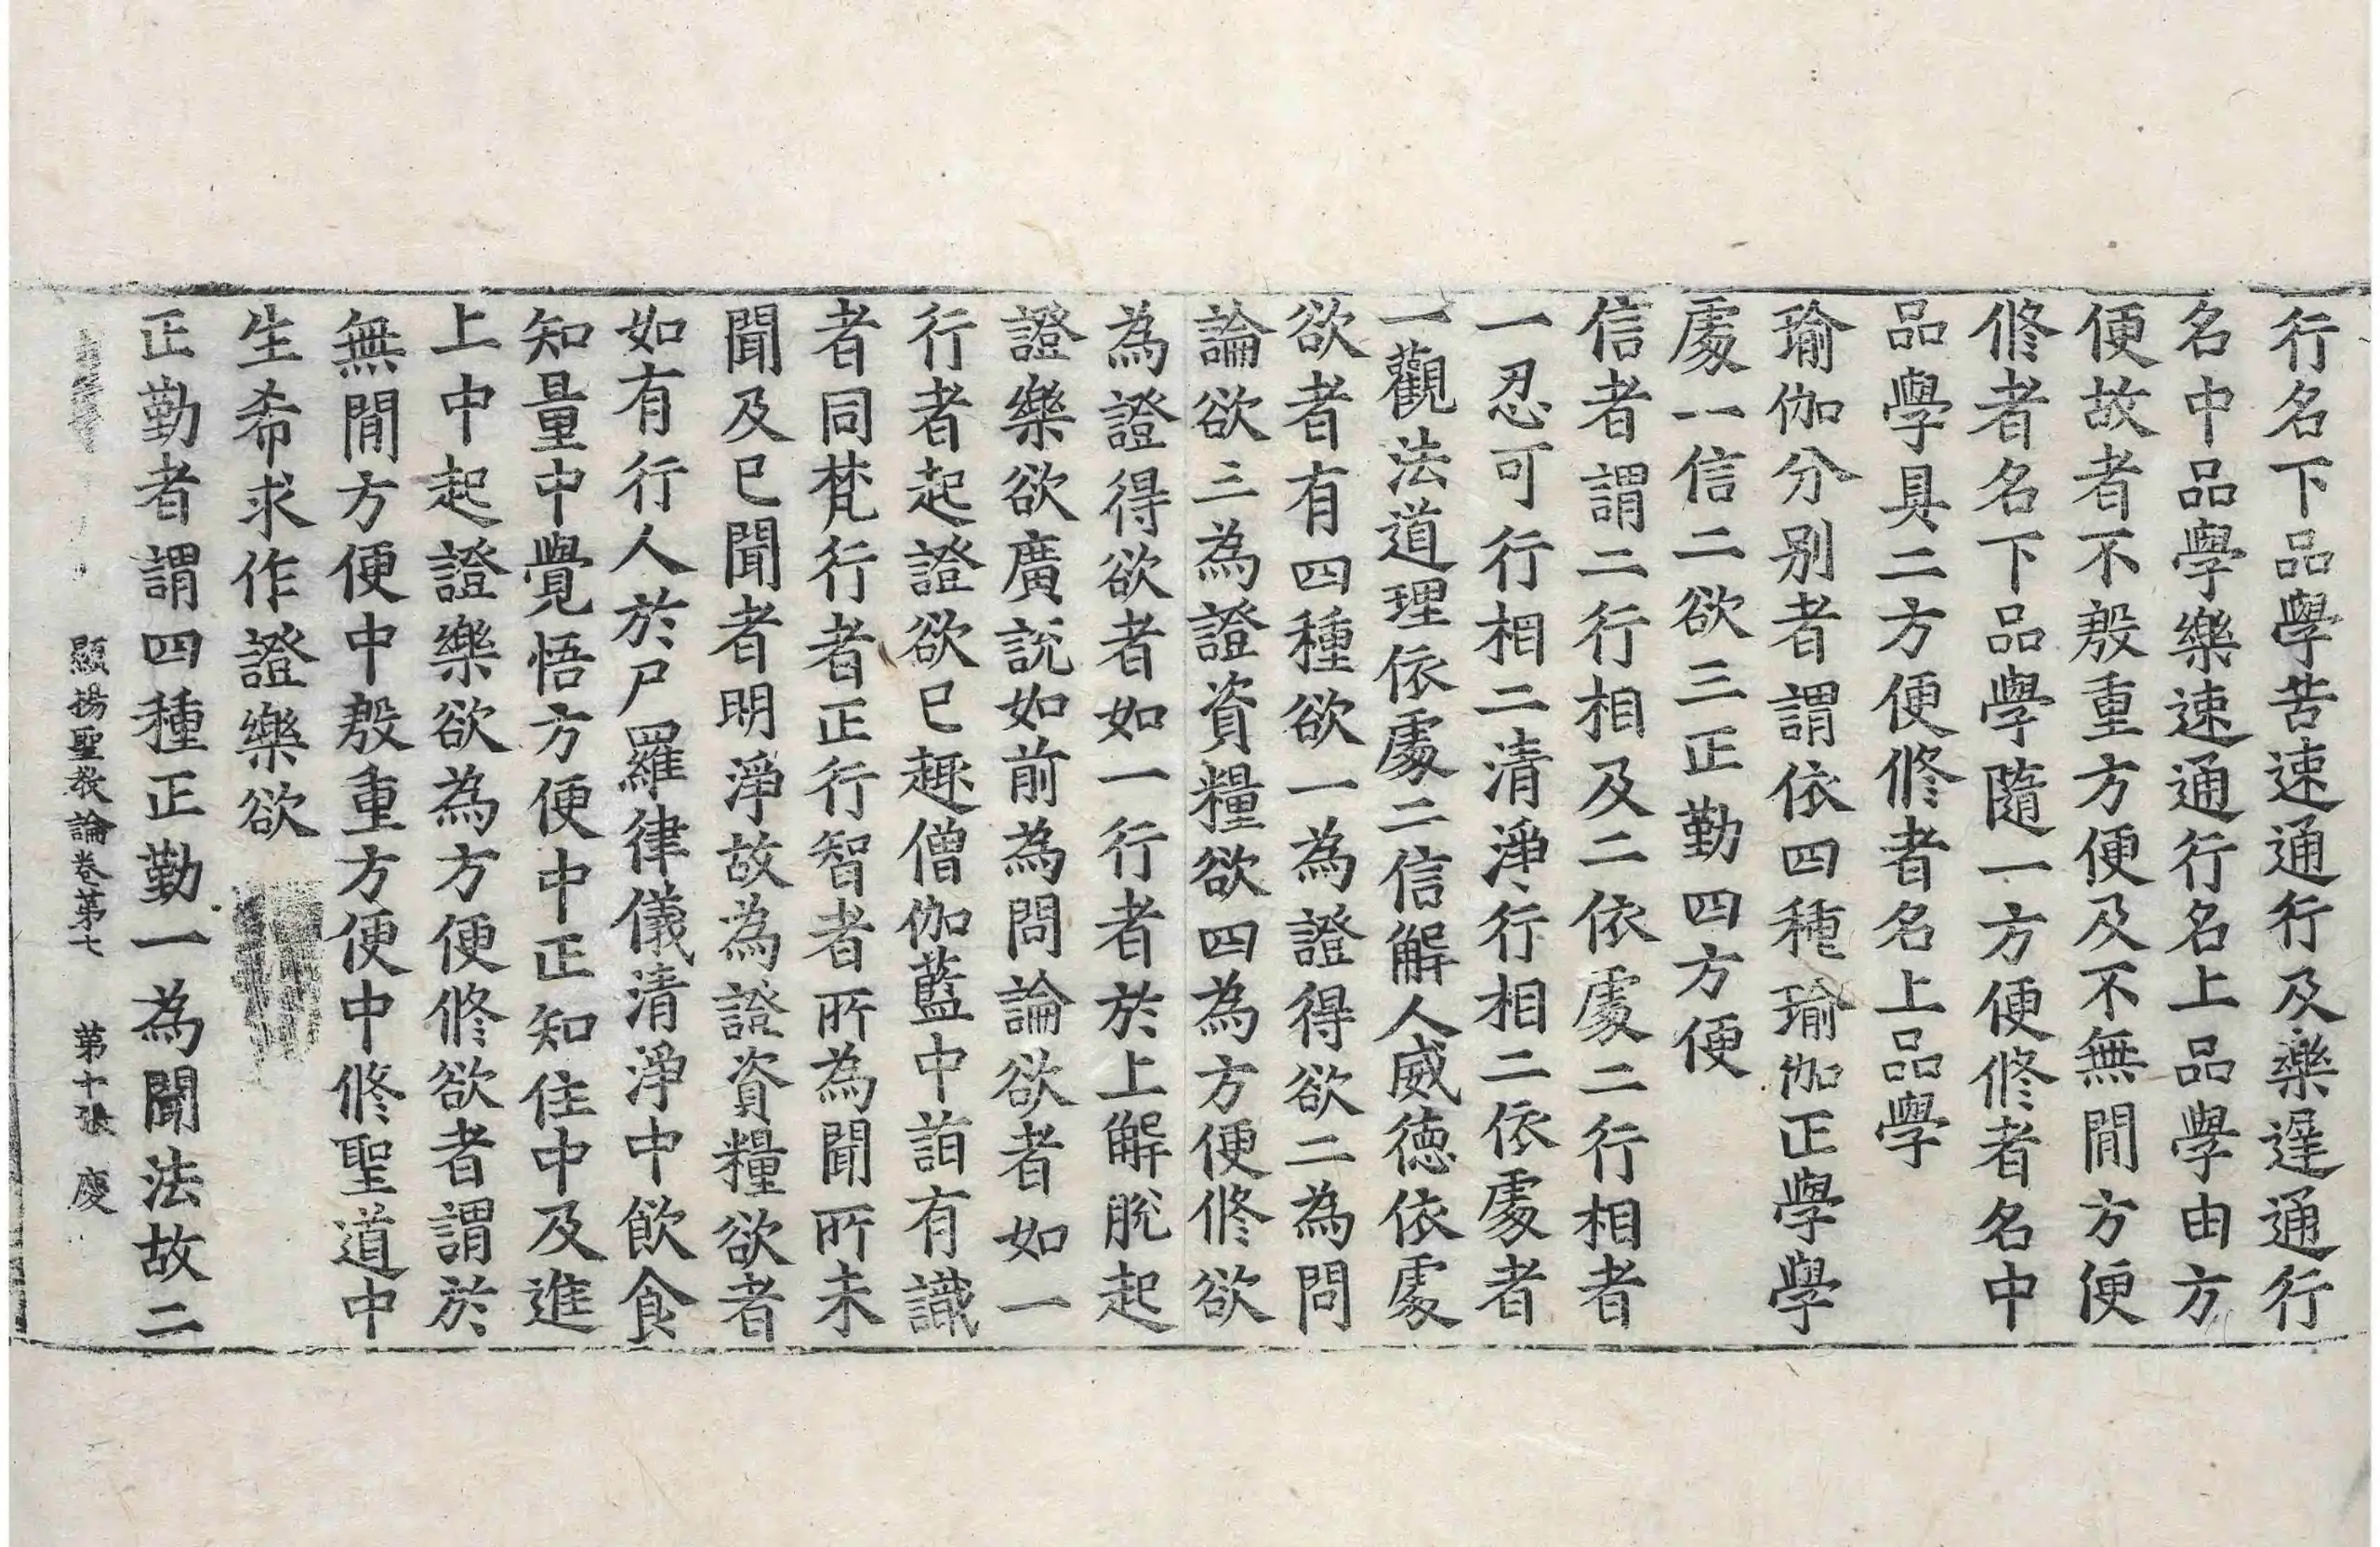 行名下品學苦速通行及樂遲通行
名中品學樂速通行名上品學由方
便故者不慇重方便及不無間方便
修者名下品學隨一方便修者名中
品學具二方便修者名上品學
瑜伽分別者謂依四種瑜伽正學學
處一信二欲三正勤四方便
信者謂二行相及二依處二行相者
一忍可行相二清淨行相二依處者
一觀法道理依處二信解人威德依處
欲者有四種欲一為證得欲二為問
論欲三為證資糧欲四為方便修欲
為證得欲者如一行者於上解脫起
證樂欲廣說如前為問論欲者如一
行者起證欲已趣僧伽藍中詣有識
者同梵行者正行智者所為聞所未
聞及已聞者明淨故為證資糧欲者
如有行人於尸羅律儀清淨中飲食
知量中覺悟方便中正知住中及進
上中起證樂欲為方便修欲者謂於
無間方便中慇重方便中修聖道中
生希求作證樂欲
正勤者謂四種正勤一為聞法故二
顯揚聖教論卷第七 第十張 慶